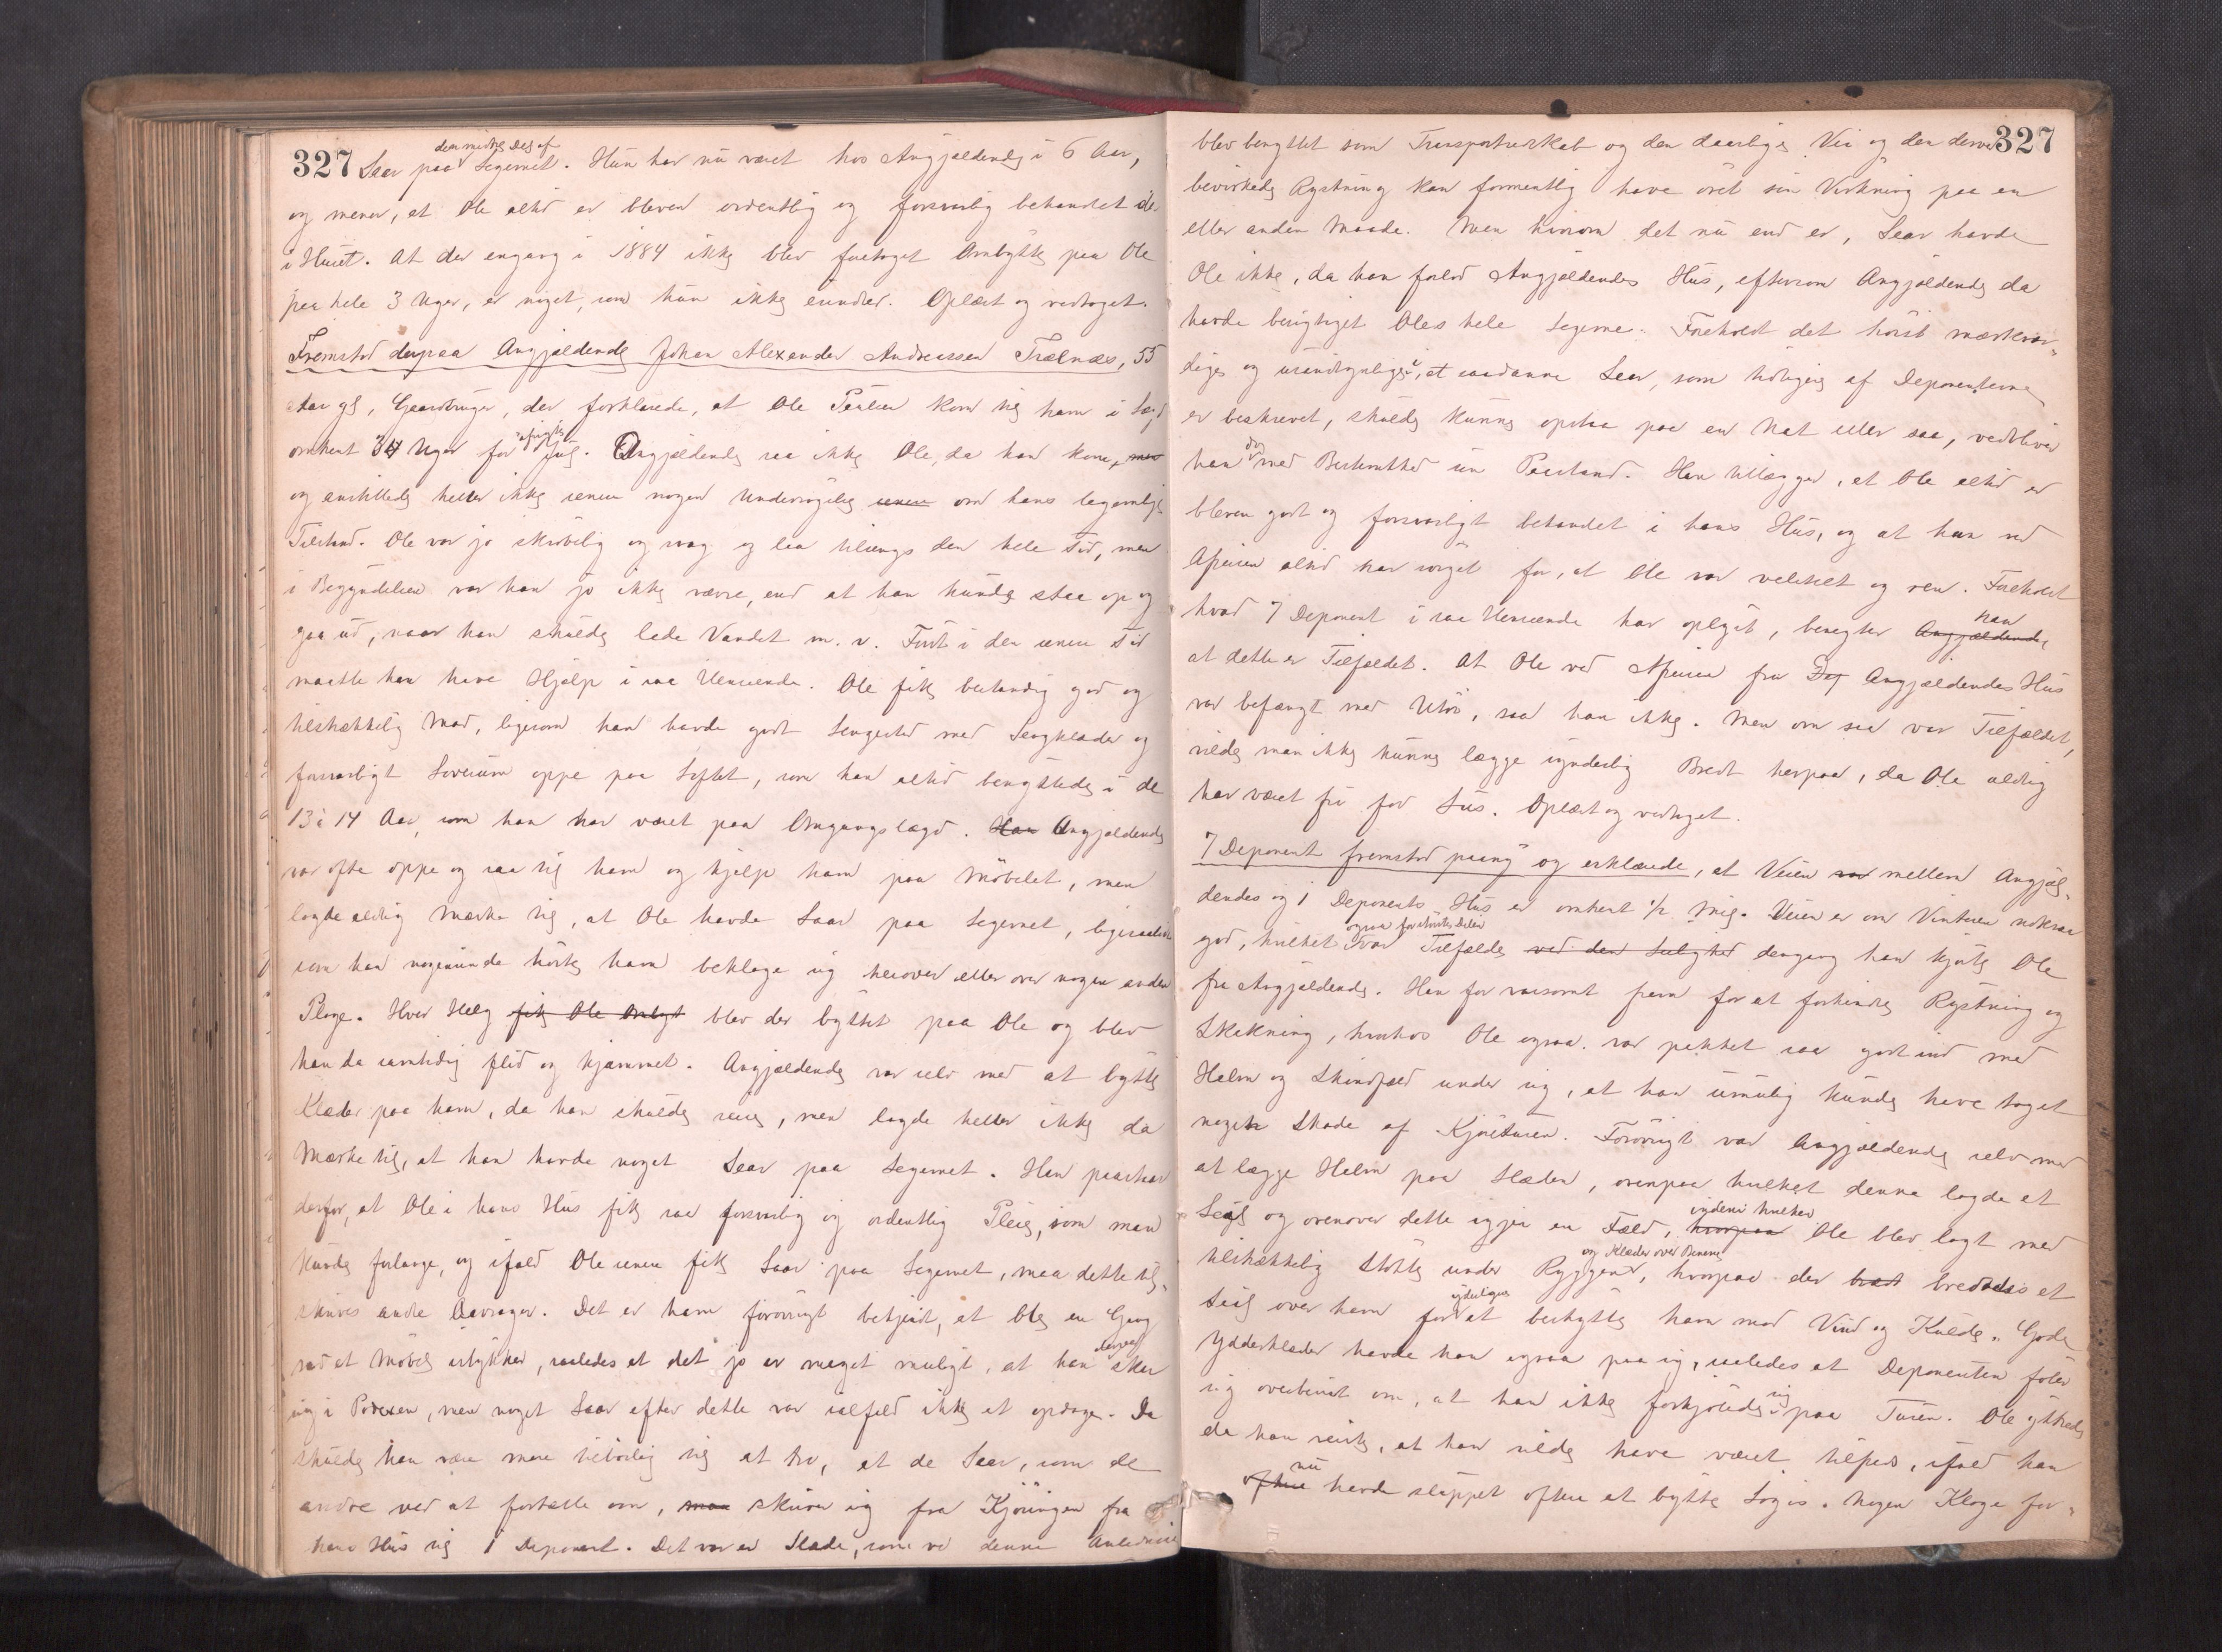 327
den nedre Del af
Saar paa Legemet. Hun har nu været hos Angjældende i 6 Aar,
og mener, at Ole altid er bleven ordentlig og forsvarlig behandlet der
i Huset. At der engang i 1884 ikke blev foretaget Ombytte paa Ole
paa hele 3 Uger, er noget, som hun ikke erindrer. Oplæst og vedtaget.
Fremstod derpaa Angjældende Johan Alexander Andreassen Trælnæs, 55
Aar gl, Gaardbruger, der forklarede, at Ole Paulsen kom til ham i Lægd
omkent 34 Uger før Jul. Angjældende saa ikke Ole, da han kom,
og anstillede heller ikke senere nogen Undersøgelse senere om hans legemlige
Tilstand. Ole var jo skrøbelig og svag og laa tilsengs den hele Tid, men
i Begyndelsen var han jo ikke værre, end at han kunde staa op og
gaa ud, naar han skulde lade Vandet m. v. Først i den senere Tid
maatte han have Hjælp i saa Henseende. Ole fik bestandig god og
tilstrækkelig Mad, ligesom han havde godt Sengested med Sengklæder og
forsvarligt Soverum oppe paa Loftet, som han altid benyttede i de
13 à 14 Aar, som han har været paa Omgangslægd. Han Angjældende
var ofte oppe og saa til ham og hjalp ham paa Møbelet, men
lagde aldrig Mærke til, at Ole havde Saar paa Legemet, ligesaalidt
som han nogensinde hørte ham beklage sig herover eller over nogen anden
Plage. Hver Helg fik Ole Ombyt blev der byttet paa Ole og blev
han da samtidig flid og kjæmmet. Angjældende var selv med at bytte
Klæder paa ham, da han skulde reise, men lagde heller ikke da
Mærke til, at han havde noget Saar paa Legemet. Han paastaar
derfor, at Ole i hans Hus fik saa forsvarlig og ordentlig Pleie, som man
kunde forlange, og ifald Ole senere fik Saar paa Legemet, maa dette til-
skrives andre Aarsager. Det er ham forøvrigt bekjendt, at Ole en Gang
derpaa
ved et Møbels istykker, saaledes at det jo er meget muligt, at han skar
sig i Podexen, men noget Saar efter dette var ialfald ikke at opdage. Da
skulde han være mere tilbøielig til at tro, at de Saar, som de
andre ved at fortælle om, maa skrive sig fra Kjøringen fra
hans Hus til 1 Deponent. Det var en Slæde, som ved denne Anledning
327
blev benyttet som Transportredskab og den daarlige Vei og den derved
bevirkede Rystning kan formentlig have øvet sin Virkning paa en
eller anden Maade. Men hvorom det nu end er, Saar havde
Ole ikke, da han forlod Angjældendes Hus, eftersom Angjældende da
havde besigtiget Oles hele Legeme. Foreholdt det høist mærkvær-
dige og usandsynlige i, at saadanne Saar, som tidligere af Deponenterne
er beskrevet, skulde kunne opstaa paa en Nat eller saa, vedbliver
dog
han med Bestemthed sin Paastand. Han tillægger, at Ole altid er
bleven godt og forsvarligt behandlet i hans Hus, og at han ved
Afreisen altid har sørget for, at Ole var velstelt og ren. Foreholdt
hvad 7 Deponent i saa Henseende har oplyst, benegter Angjældende
han
at dette er Tilfældet. At Ole ved Afreisen fra Angjældendes Hus
var befængt med Utøi, saa han ikke. Men om saa var Tilfældet,
vilde man ikke kunne lægge synderlig Brett herpaa, da Ole aldrig
har været fri for Lus. Oplæst og vedtaget.
7 Deponent fremstod paany og erklærede, at Veien var mellem Angjæl-
dendes og 1 Deponents Hus er omkent 1/2 Mil. Veien er om Vinteren noksaa
ogsaa for største Delen
god, hvilket var Tilfælde ved den Leilighed dengang han kjørte Ole
fra Angjældende. Han for varsomt frem for at forhindre Rystning og
Skakning, hvorhos Ole ogsaa var pakket saa godt ind med
Halm og Skindfæld under sig, at han umulig kunde have taget
nogen Skade af Kjøreturen. Forøvrigt var Angjældende selv med
at lægge Halm paa Slæden, ovenpaa hvilket denne lagde et
Seil og ovenover dette igjen en Fæld, hvorpaa Ole blev lagt med
indeni hvilken
tilstrækkelig Støtte under Ryggen, hvorpaa der bredt bredtes et
og Klæder over Benene
Seil over ham for at beskytte ham mod Vind og Kulde. Gode
yderligere
Yderklæder havde han ogsaa paa sig, saaledes at Deponenten føler
sig overbevist om, at han ikke forkjølede sig paa Turen. Ole yttrede
da han reiste, at han vilde have været tilfreds, ifald han
nu
oftere havde sluppet oftere at bytte Logis. Nogen Klage for-